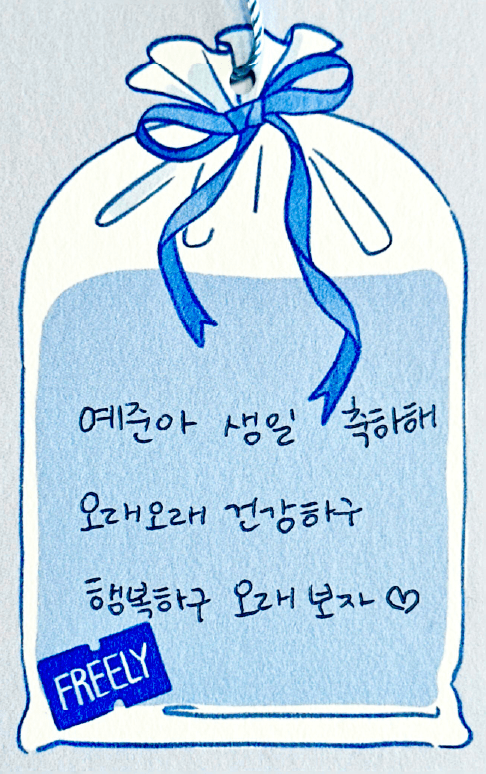 예준아 생일 축하해
오래오래 건강하구
행복하구 오래 보자♡
FREELY